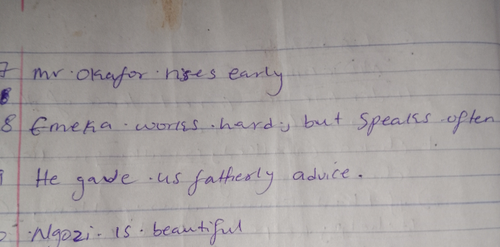 7 Mr. Okafor rises early
8 Emeka works hard, but speaks often
He gave us fatherly advice.
Ngozi is beautiful